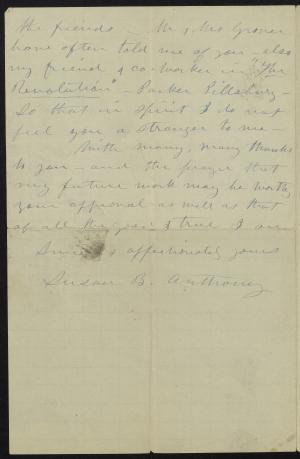 the friends — Mr, Mrs Grover
have often told me of you — also
my friend & co-worker in "The
Revolution" — Parker Pillsbury —
So that in spirit I do not
feel you a stranger to me —
With many, many thanks
to you — and the prayer that
my future work may be worthy
your approval as well as that
of all the good & true I am
affectionately yours
Susan B. Anthony